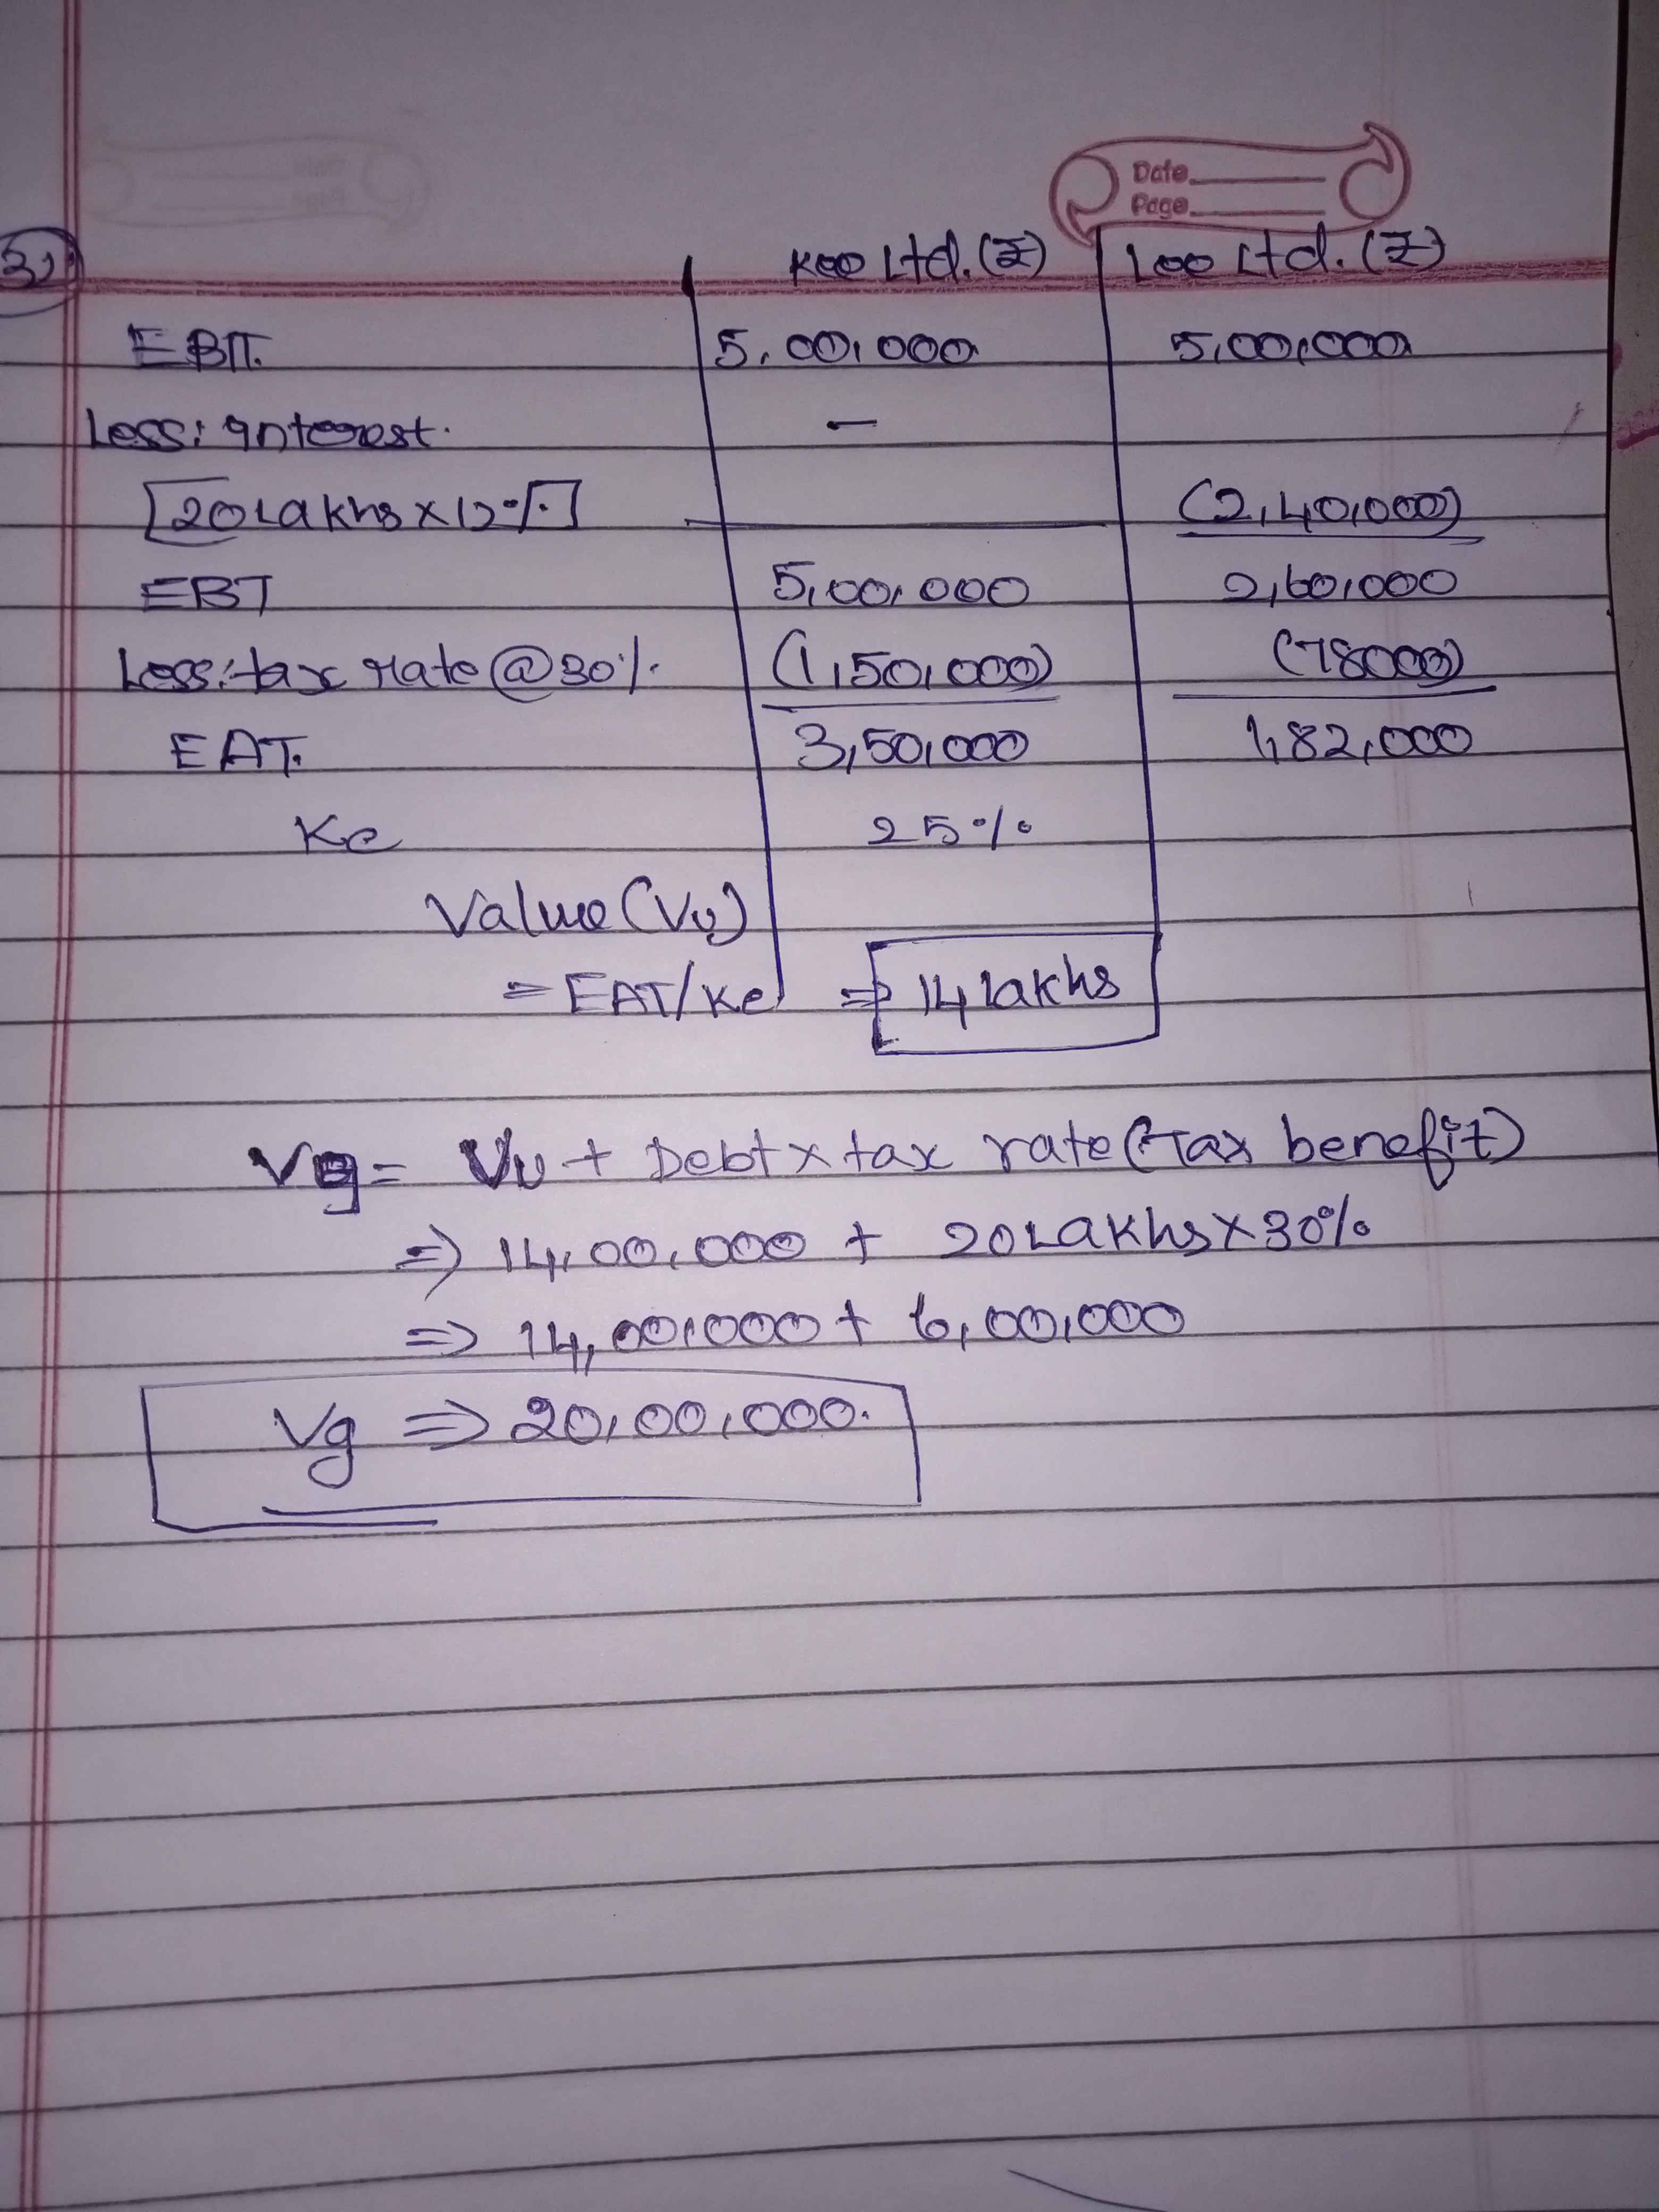 Date
Page
3)
Koo Ltd. (₹) Loo Ltd. (₹)
EBIT. 5,00,000 5,00,000
Less: Interest. -
[20 Lakhs x 12%] (2,40,000)
EBT 5,00,000 2,60,000
Less: tax rate @ 30%. (1,50,000) (78000)
EAT. 3,50,000 1,82,000
Ke 25%
Value (Vu)
= EAT/Ke ⇒ 14 lakhs
Vg = Vu + Debt x tax rate (Tax benefit)
⇒ 14,00,000 + 20 Lakhs x 30%
⇒ 14,00,000 + 6,00,000
Vg ⇒ 20,00,000.